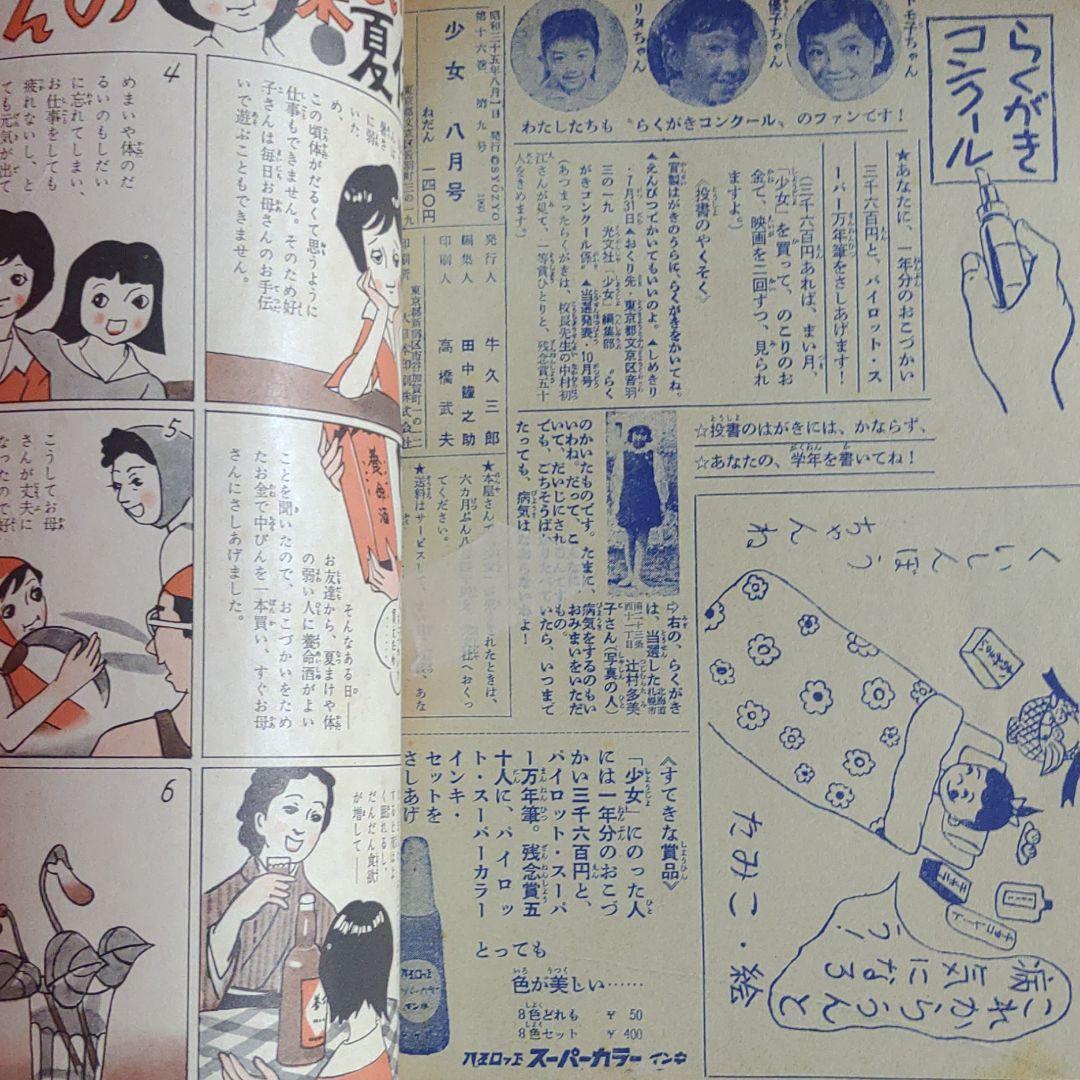 らくがき
コンクール
トモ子ちゃん
優子ちゃん
リタちゃん
わたしたちも〝らくがきコンクール〟のファンです！
★あなたに、一年分のおこづかい
三千六百円と、パイロット・ス
ーパー万年筆をさしあげます！
（三千六百円あれば、まい月、
「少女」を買って、のこりのお
金で、映画を二回ずつ、見られ
ますよ。）
《投書のやくそく》
▲官製はがきのうらに、らくがきをかいてね。
▲えんぴつでかいてもいいのよ。▲しめきり
・7月31日▲おくり先、東京都文京区音羽
三の一九　光文社「少女」編集部　〝らく
がきコンクール係〟▲当選発表・10月号
（あつまったらくがきは、校長先生の中村初
江さんが見て、一等賞ひとりと、残念賞五十
人をきめます。）
☆投書のはがきには、かならず、
☆あなたの、学年を書いてね！
⇨右の、らくがき
は、当選した北海道札幌市
南二十三条
西十一丁目　辻村多美
子さん（写真の人）
のかいたものです。たまに、病気をするのもい
いわね。だって、こんなに、おみまいをいただ
いて、だいじにされ
でも、ごちそうば
たっても、病気は
昭和三十五年八月一日発行
第十六巻　第九号
©SYÔZYO
1960
少女　八月号
ねだん　一四〇円
東京都文京区音羽町三の一九
発行人　牛久三郎
編集人　田中鐘之助
印刷人　高橋武夫
東京都新宿区市谷加賀町一の一二
印刷所　大日本印刷株式会社
★本屋さんで
れたときは、
六カ月ぶん
（おくっ
てください。
★送料はサービスして
《すてきな賞品》
「少女」にのった人
には一年分のおこづ
かい三千六百円と、
パイロット・スーパ
ー万年筆。残念賞五
十人に、パイロッ
ト・スーパーカラー
インキ・
セットを
さしあげ
とっても
色が美しい……
8色どれも　￥50
8色セット　￥400
パイロット スーパーカラー インキ
くいしんぼう
ちゃんね
これからうんと
病気になろ
う！
たみこ・絵
夏
4
めまいや体のだ
るいのもしだい
に忘れてしまい、
お仕事をしても
疲れないし、と
ても元気が出て
この頃体がだるくて思うように
仕事もできません。そのため好
子さんは毎日お母さんのお手伝
いで遊ぶこともできません。
5
こうしてお母
さんが丈夫に
なったので好
養命酒
そんなある日。――
お友達から、夏まけや体
の弱い人に養命酒がよい
ことを聞いたので、おこづかいをため
たお金で中びんを一本買い、すぐお母
さんにさしあげました。
6
く眠れるし、
だんだん食欲
が増して――